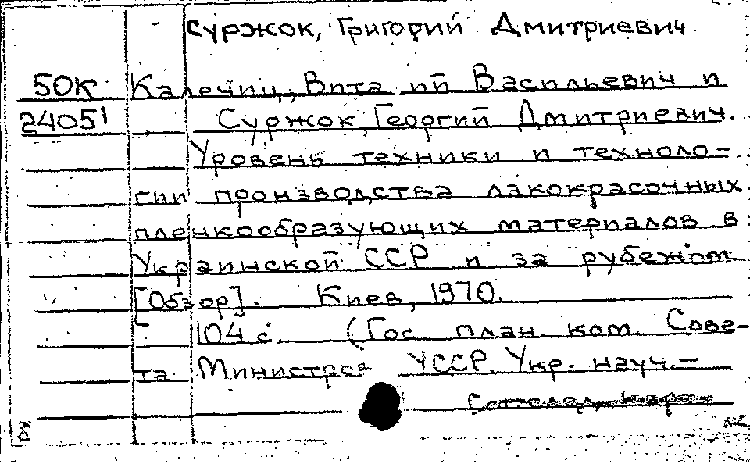 Суржок, Григорий Дмитриевич
50К Калечиц, Виталий Васильевич и
24051 Суржок Георгий Дмитриевич.
Уровень техники и техноло-
гии производства лакокрасочных
пленкообразующих материалов в
Украинской ССР и за рубежом
[Обзор]. Киев, 1970.
104 с. (Гос. план. ком. Сове-
та Министров УССР. Укр. науч.-